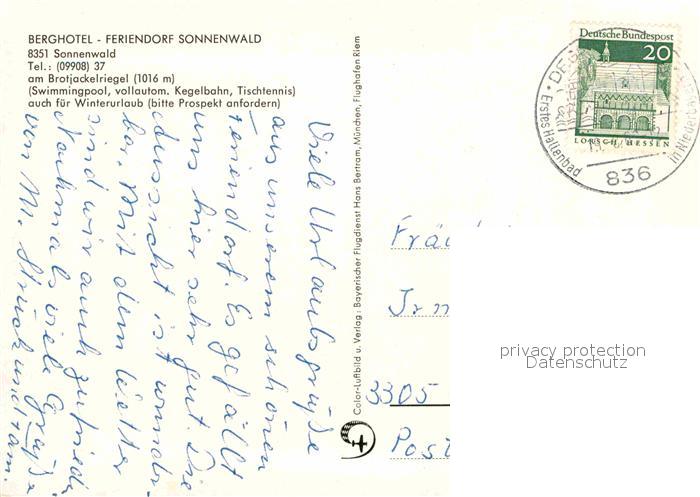 BERGHOTEL - FERIENDORF SONNENWALD
8351 Sonnenwald
Tel.: (09908) 37
am Brotjackelriegel (1016 m)
(Swimmingpool, vollautom. Kegelbahn, Tischtennis)
auch für Winterurlaub (bitte Prospekt anfordern)
Viele Urlaubsgrüße
aus unserem schönen
Feriendorf. Es gefällt
uns hier sehr gut. Die
Aussicht ist wunder-
bar. Mit dem Wetter
sind wir auch zufried.
Nochmals viele Grüße
von M. Struck und Fam.
Color-Luftbild u. Verlag: Bayerischer Flugdienst Hans Bertram, München, Flughafen Riem
Deutsche Bundespost
20
LORSCH/HESSEN
Erstes Hallenbad
in Niederb
836
Frä
Irm
3305
Post
privacy protection
Datenschutz